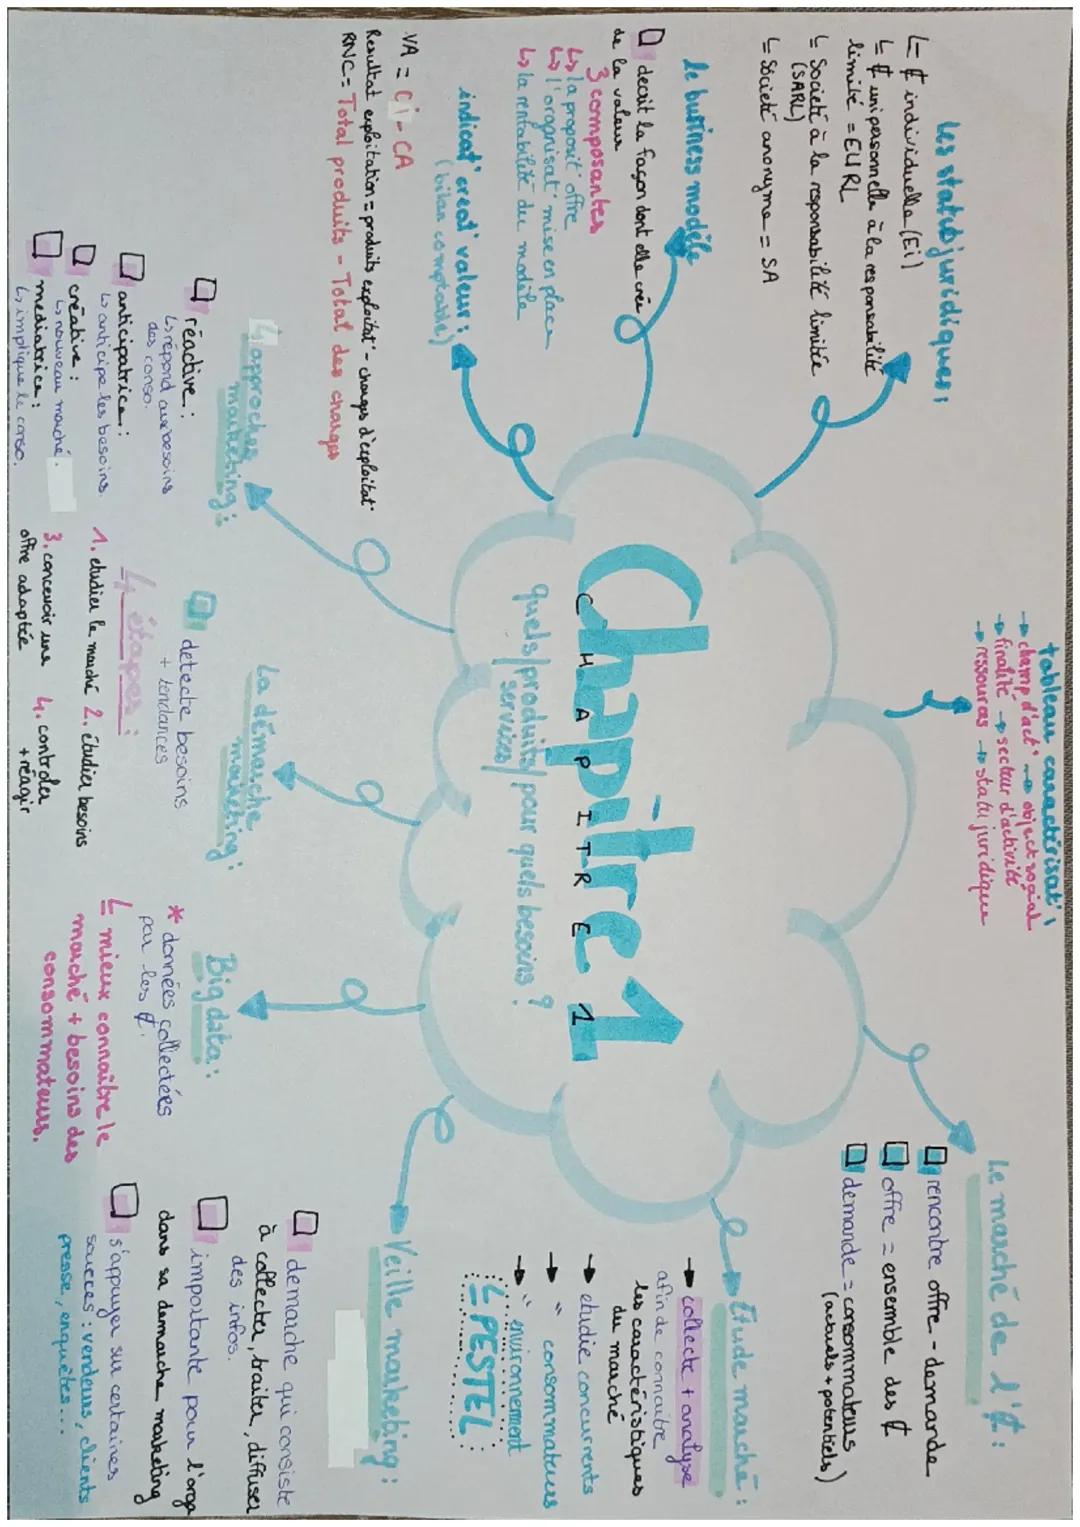 Chapitre 1
CHAPITRE 1
quels/produits/pour quels besoins?
services/
Les status juridiques :
↳ ₵ individuelle (Ei)
↳ ₵ unipersonnelle à la responsabilité
limité = EURL
↳ Societé à la responsabilité limitée
(SARL)
↳ Societé anonyme = SA
tableau caractérisat° :
→ champ d'act° → object social
→ finalité → secteur d'activité
→ ressources → statu juridique
Le marché de l'₵ :
rencontre offre - demande
offre = ensemble des ₵
demande = consommateurs
(actuels + potentiels)
Étude marché :
→ collecte + analyse
afin de connaitre
les caractéristiques
du marché
→ etudie concurrents
→ " consommateurs
→ " environnement
↳ PESTEL
Veille marketing :
demarche qui consiste
à collecter, traiter, diffuser
des infos.
importante pour l'orga
dans sa demarche marketing
s'appuyer sur certaines
sources : vendeurs, clients
presse, enquêtes...
Big data :
* données collectées
par les ₵.
↳ mieux connaitre le
marché + besoins des
consommateurs.
La démarche
marketing :
detecte besoins
+ tendances
4 étapes :
1. etudier le marché 2. étudier besoins
3. concevoir une 4. controler
offre adaptée + réagir
4 approches
marketing :
réactive :
↳ répond aux besoins
des conso.
anticipatrice :
↳ anticipe les besoins.
créative :
↳ nouveau marché.
mediatrice :
↳ implique le conso.
indicat° creat° valeur :
(bilan comptable)
VA = Ci - CA
Resultat exploitation = produits exploitat° - charges d'exploitat°
RNC = Total produits - Total des charges
le business modèle
decrit la façon dont elle crée
de la valeur
3 composantes
↳ la proposit° offre
↳ l'organisat° mise en place
↳ la rentabilité du modèle